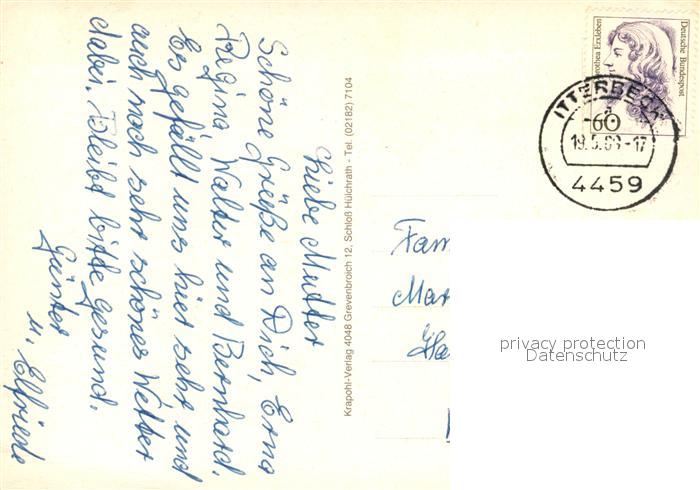 Liebe Mutter
Schöne Grüße an Dich, Erna
Regina Walter und Bernhard.
Es gefällt uns hier sehr und
auch noch sehr schönes Wetter
dabei. Bleibt bitte gesund.
Günter
u. Elfriede
Krapohl-Verlag 4048 Grevenbroich 12, Schloß Hülchrath - Tel. (02182) 7104
Deutsche Bundespost
Dorothea Erxleben
60
ITTERBECK
-17
4459
Fam
privacy protection
Datenschutz